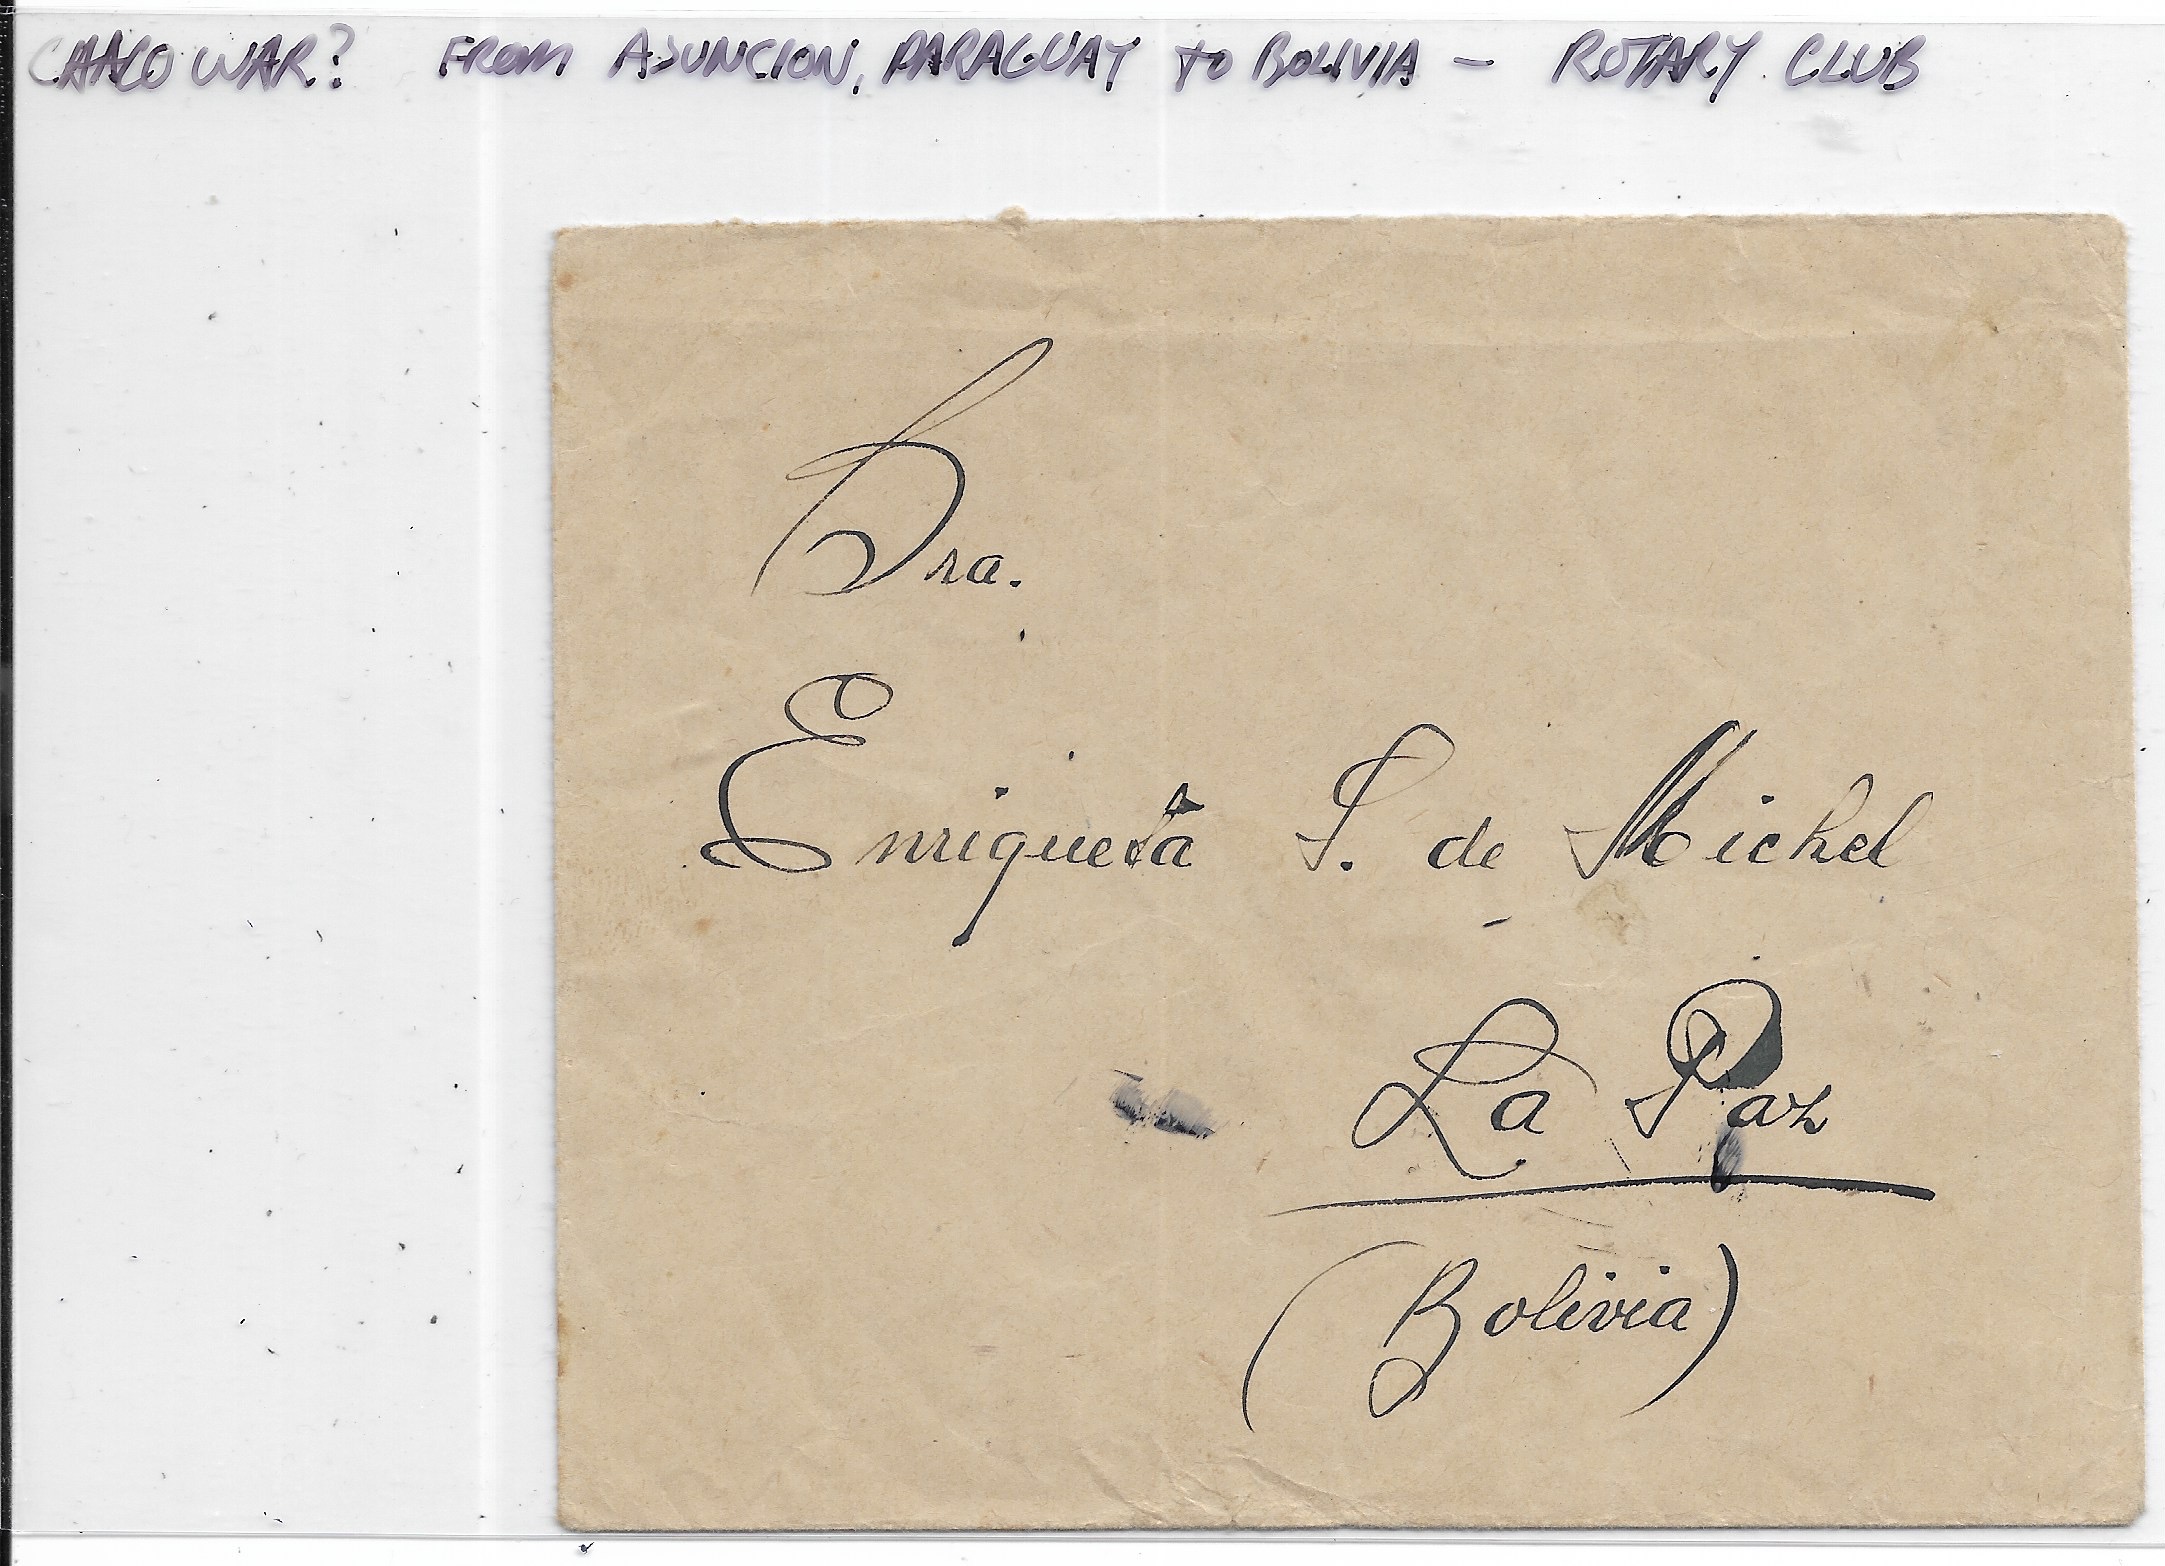 CHACO WAR? FROM ASUNCION, PARAGUAY TO BOLIVIA – ROTARY CLUB
Sra.
Enriqueta S. de Michel
La Paz
(Bolivia)